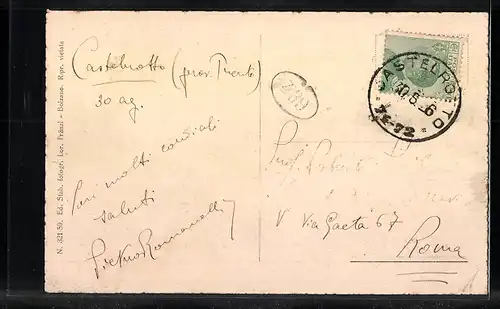 Castelrotto (prov. Trento)
30 ag.
molti cordiali
saluti
Pietro Romanelli
N. 321-59. Ed. Stab. fotogr. Lor. Fränzl - Bolzano. Ripr. vietata
CASTELROTTO
Prof. Roberto
V Via Gaeta 67
Roma